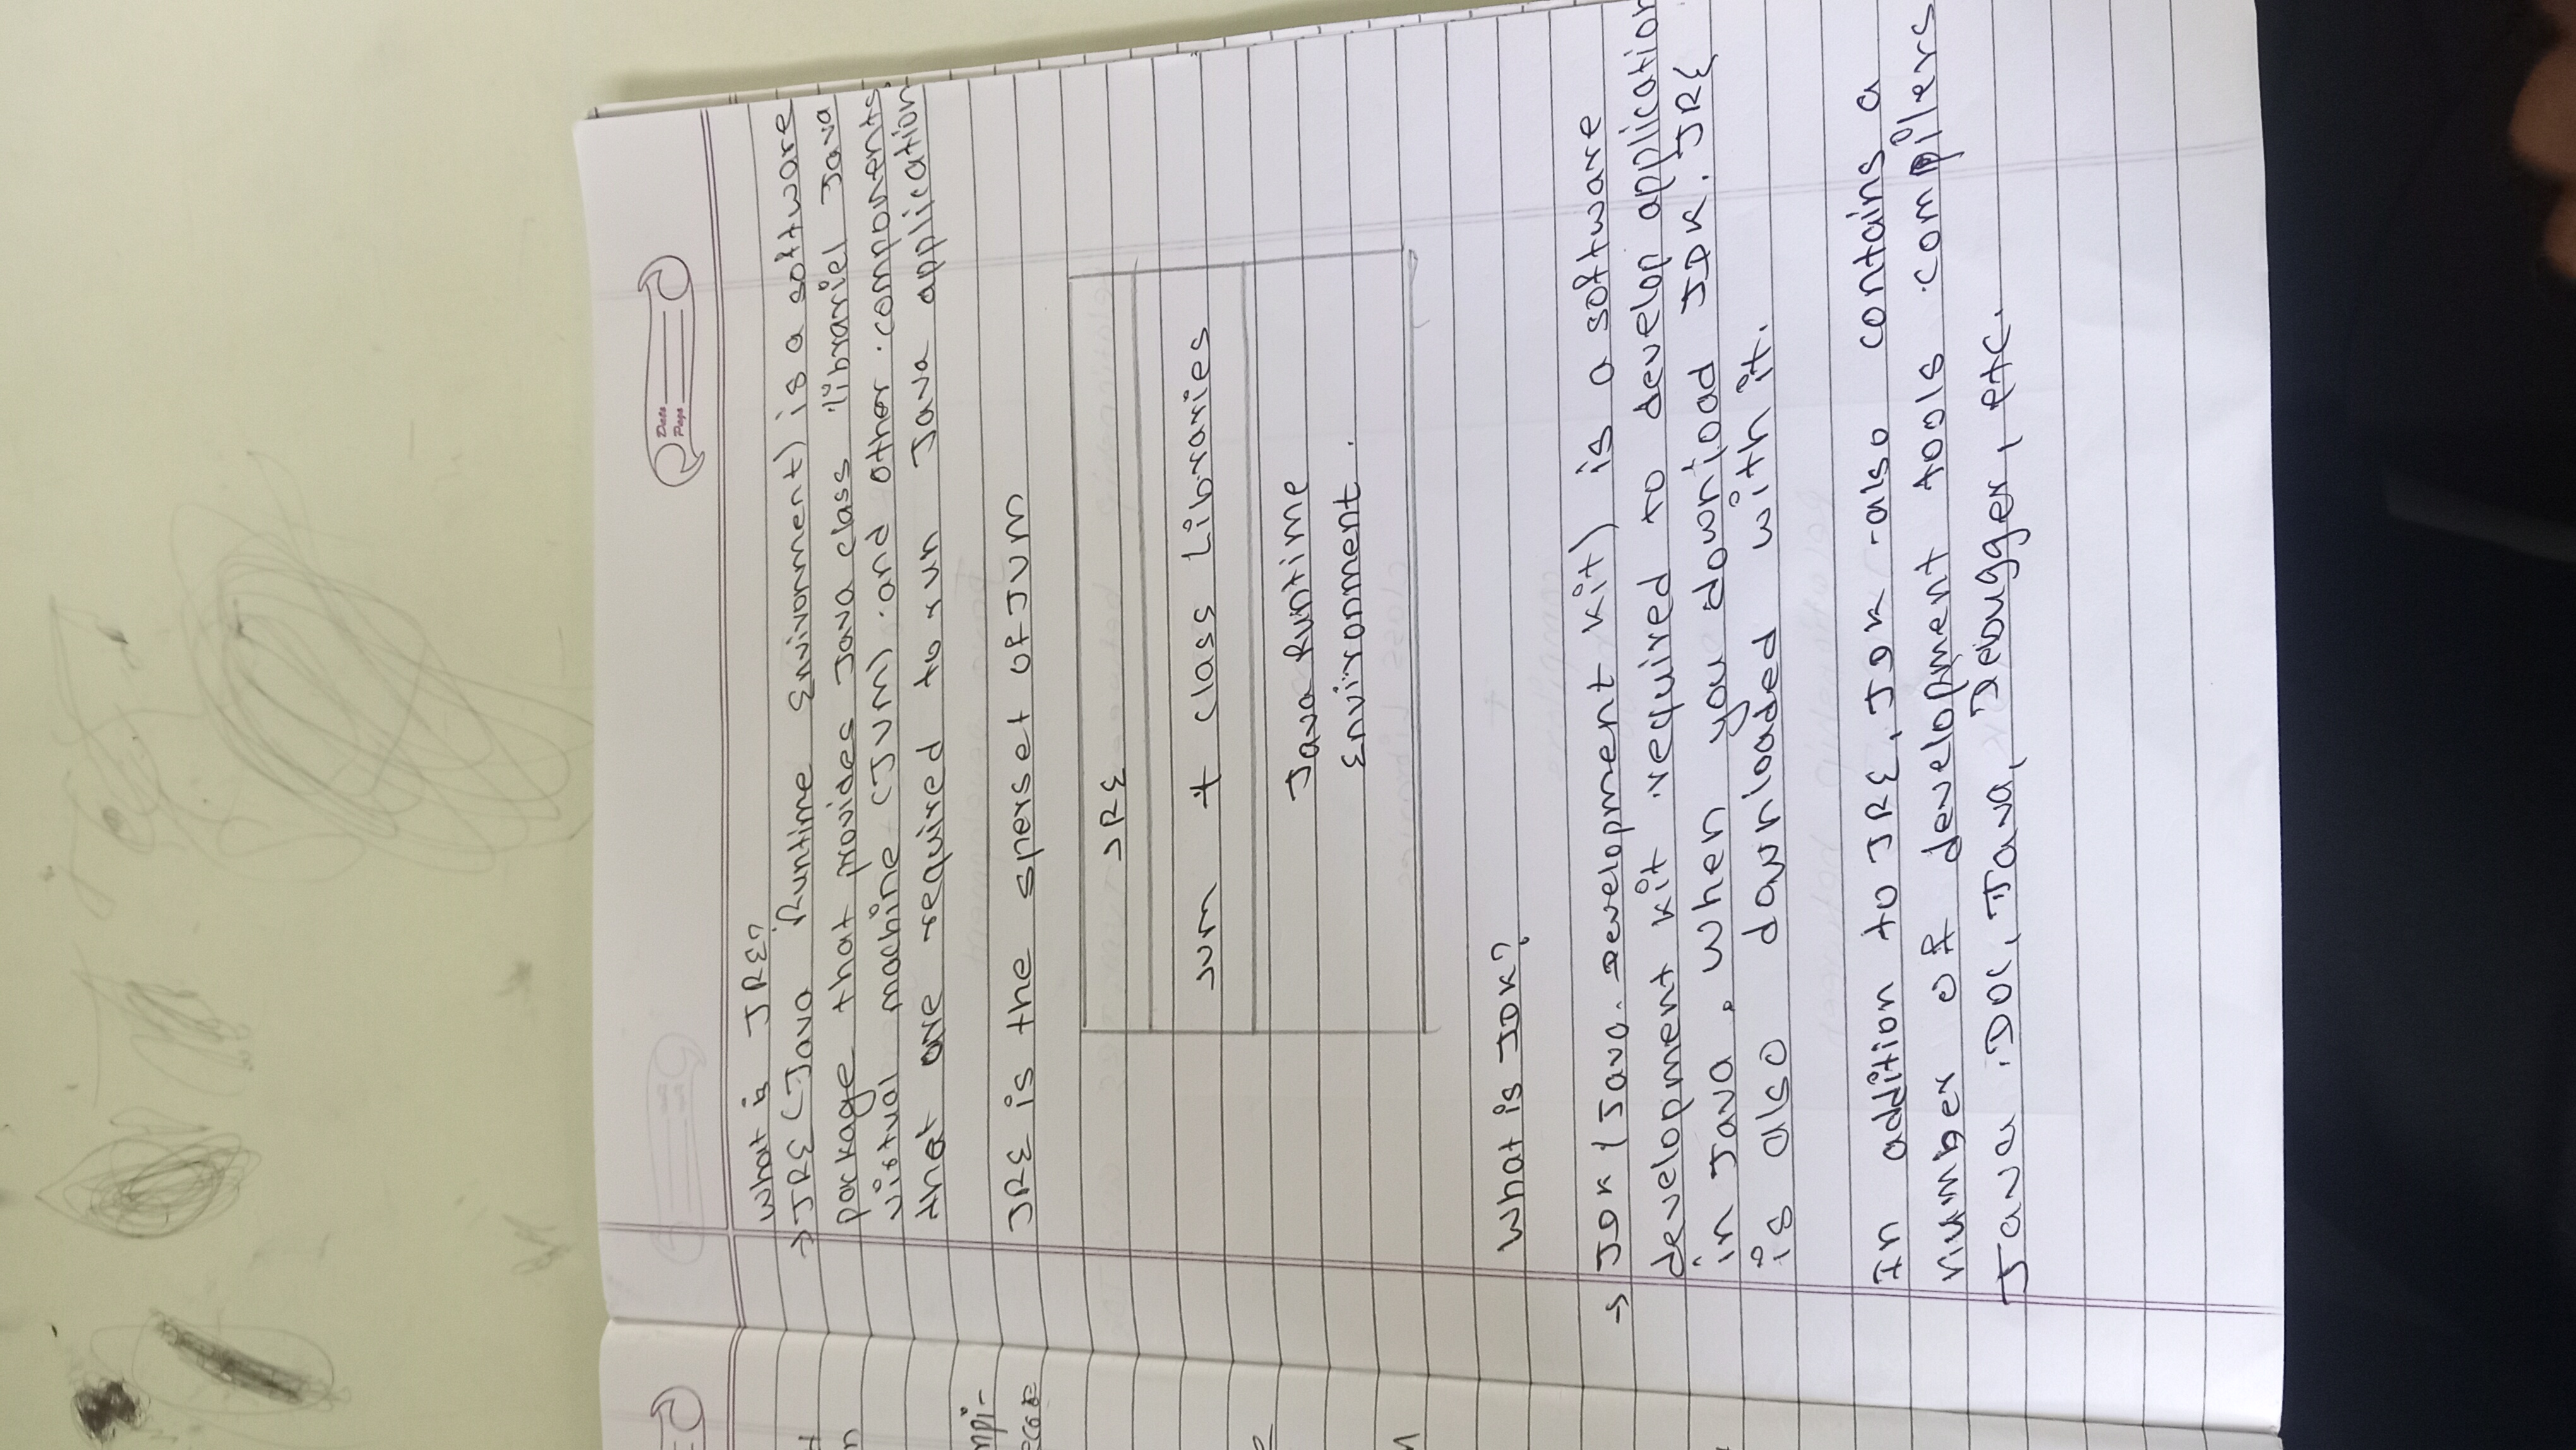 Date
Page
What is JRE?
→ JRE (Java Runtime Environment) is a software
package that provides Java class librariel Java
virtual machine (JVM) and other components
that are required to run Java application
JRE is the sperset of JVM
JRE
JVM + class Libraries
Java Runtime
Environment.
What is JDK?
→ JDK (Java Development Kit) is a software
development kit required to develop application
in Java. When you download JDK, JRE
is also downloaded with it.
In addition to JRE, JDK also contains a
number of development tools compilers
Java, DOC, Java, Debugger, etc.